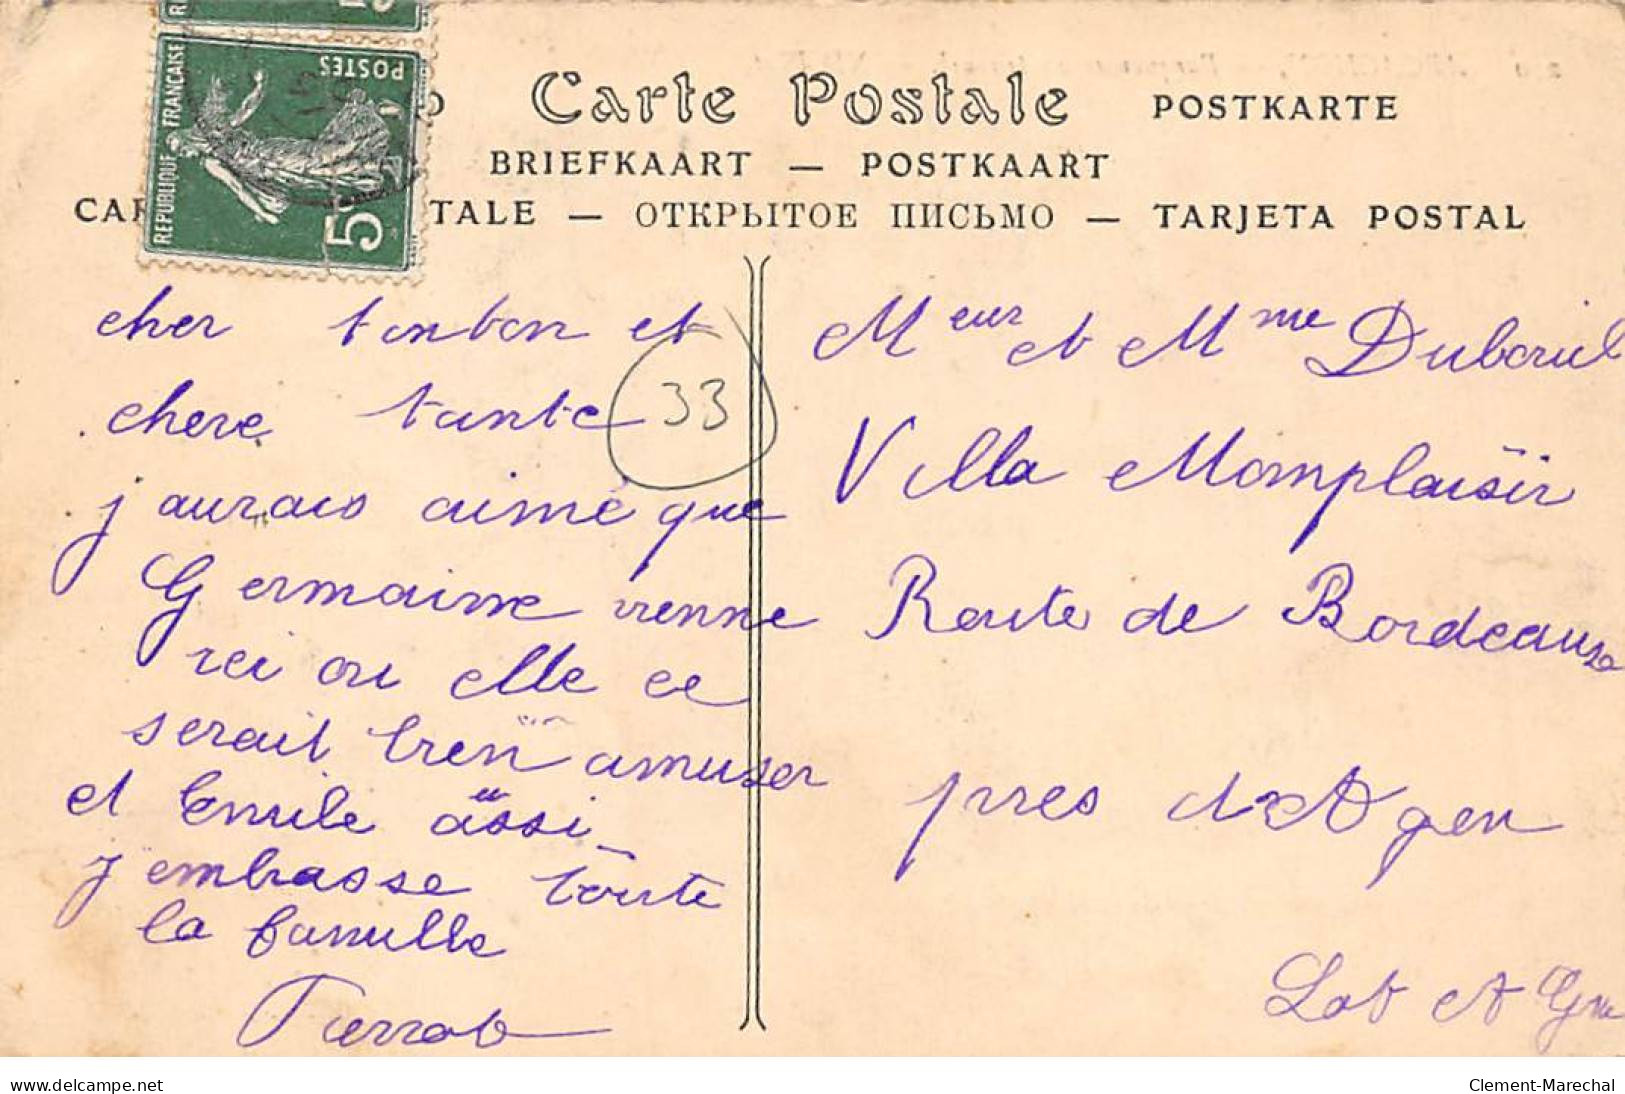 POSTES
RÉPUBLIQUE FRANÇAISE
5
Carte Postale
POSTKARTE
BRIEFKAART — POSTKAART
CAR TALE — ОТКРЫТОЕ ПИСЬМО — TARJETA POSTAL
cher tonton et
chere tante
33
j aurais aimé que
Germaine vienne
ici ou elle ce
serait bien amuser
et Emile aussi
j'embrasse toute
la famille
Pierrot
Meur et Mme Duboruil
Villa Momplaisir
Route de Bordeaux
pres d'Agen
Lot et Gne
www.delcampe.net
Clement-Marechal